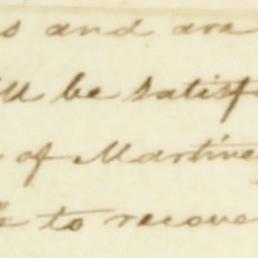 s and are
ll be satisf
of Martine
to recove